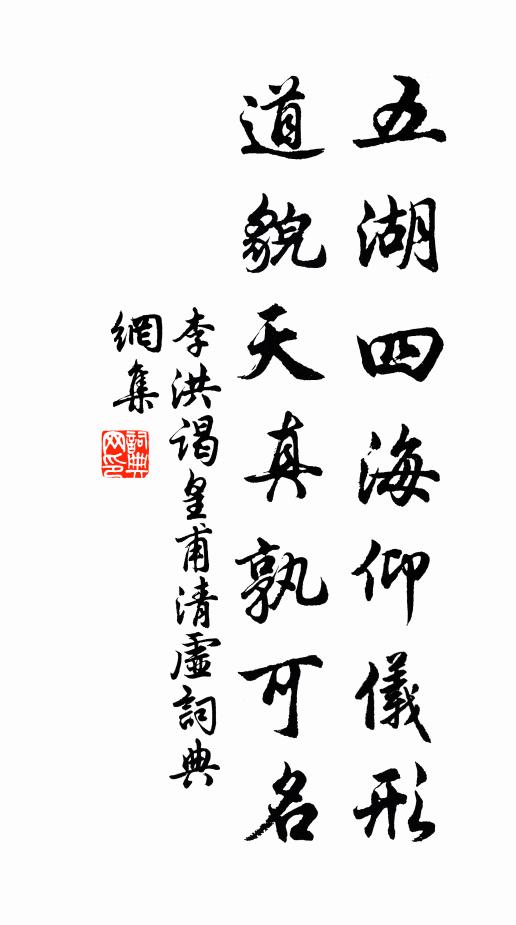 五湖四海仰儀形
道貌天真孰可名
李洪謁皇甫清虛詞典
網集
詞典網印